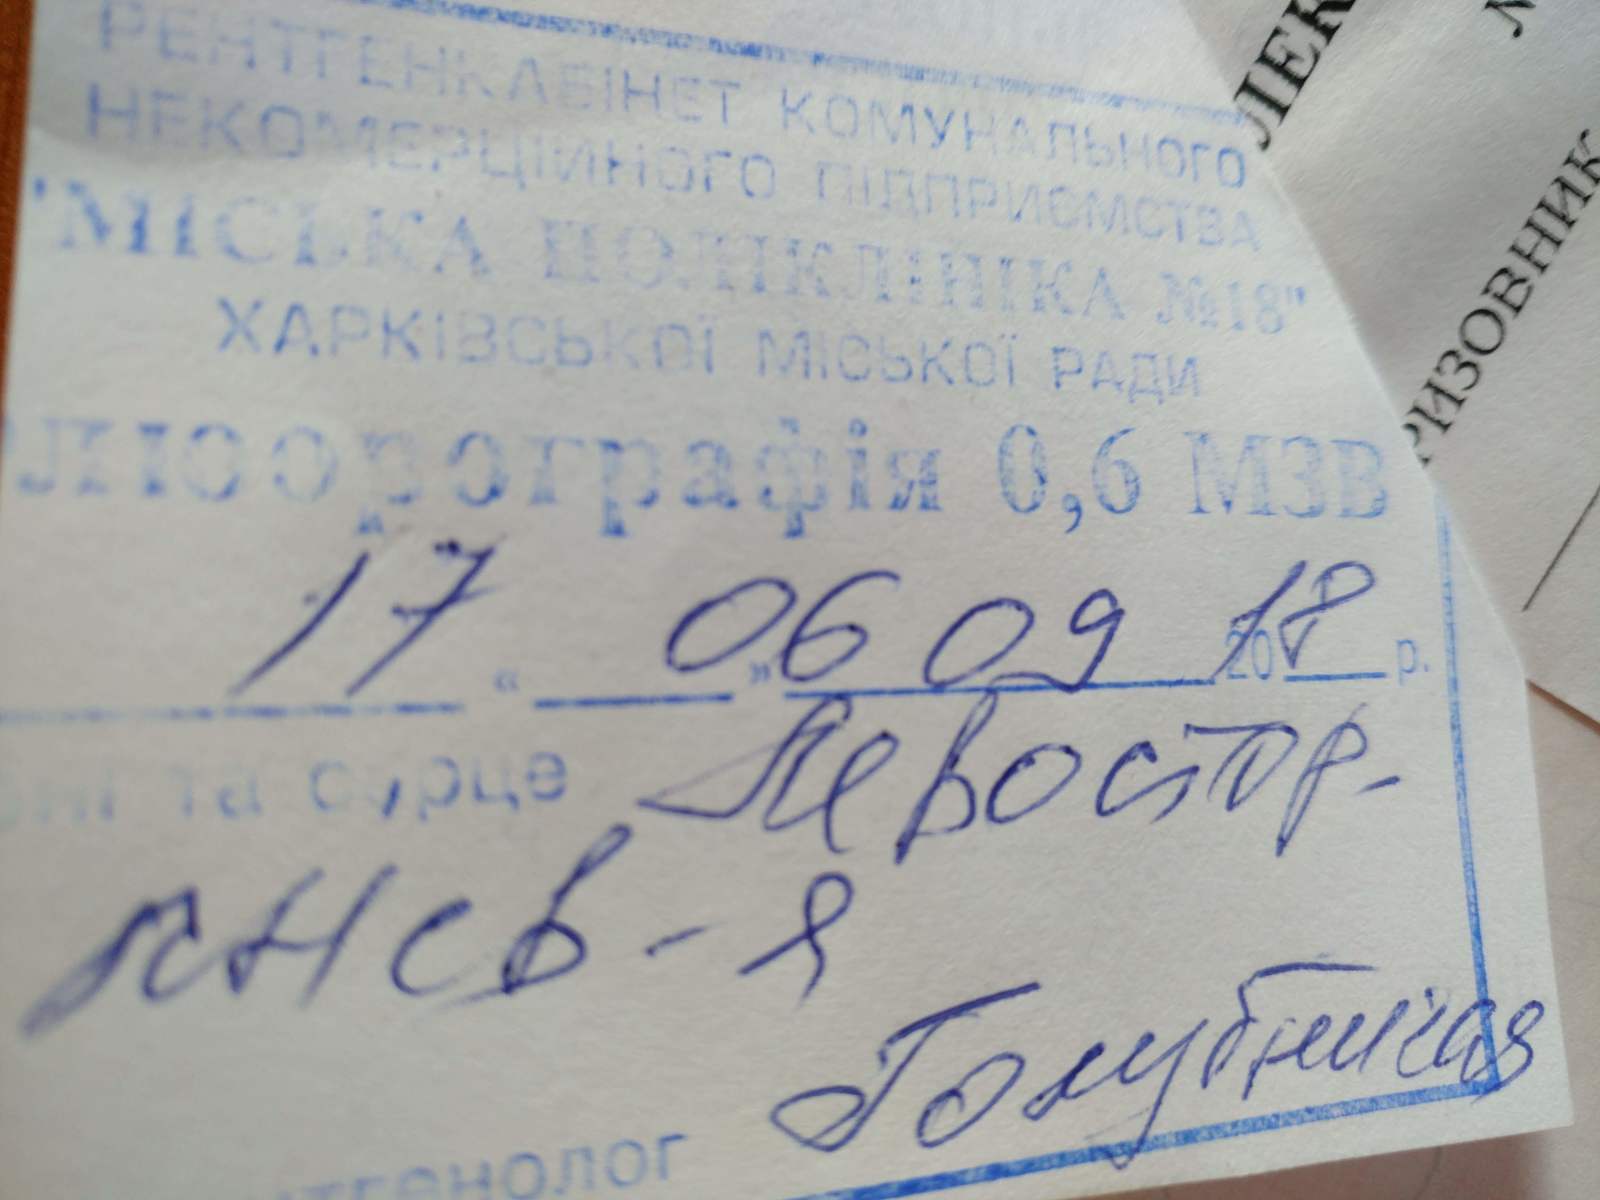 РЕНТГЕНКАБІНЕТ КОМУНАЛЬНОГО
НЕКОМЕРЦІЙНОГО ПІДПРИЄМСТВА
"МІСЬКА ПОЛІКЛІНІКА №18"
ХАРКІВСЬКОЇ МІСЬКОЇ РАДИ
люорографія 0,6 МЗВ
17 « 06 » 09 20 18 р.
ені та сурце Левостор.
пнев-я
Голубничая
нтгенолог
ЛЕК
РИЗОВНИК